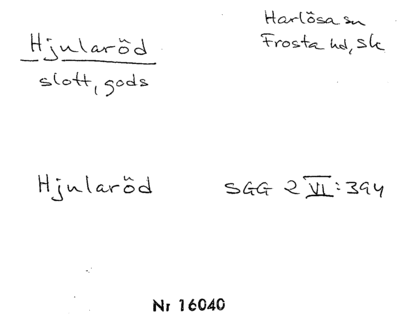 Hjularöd
slott, gods
Harlösa sn
Frosta hd, Sk
Hjularöd
SGG 2 VI:394
Nr 16040